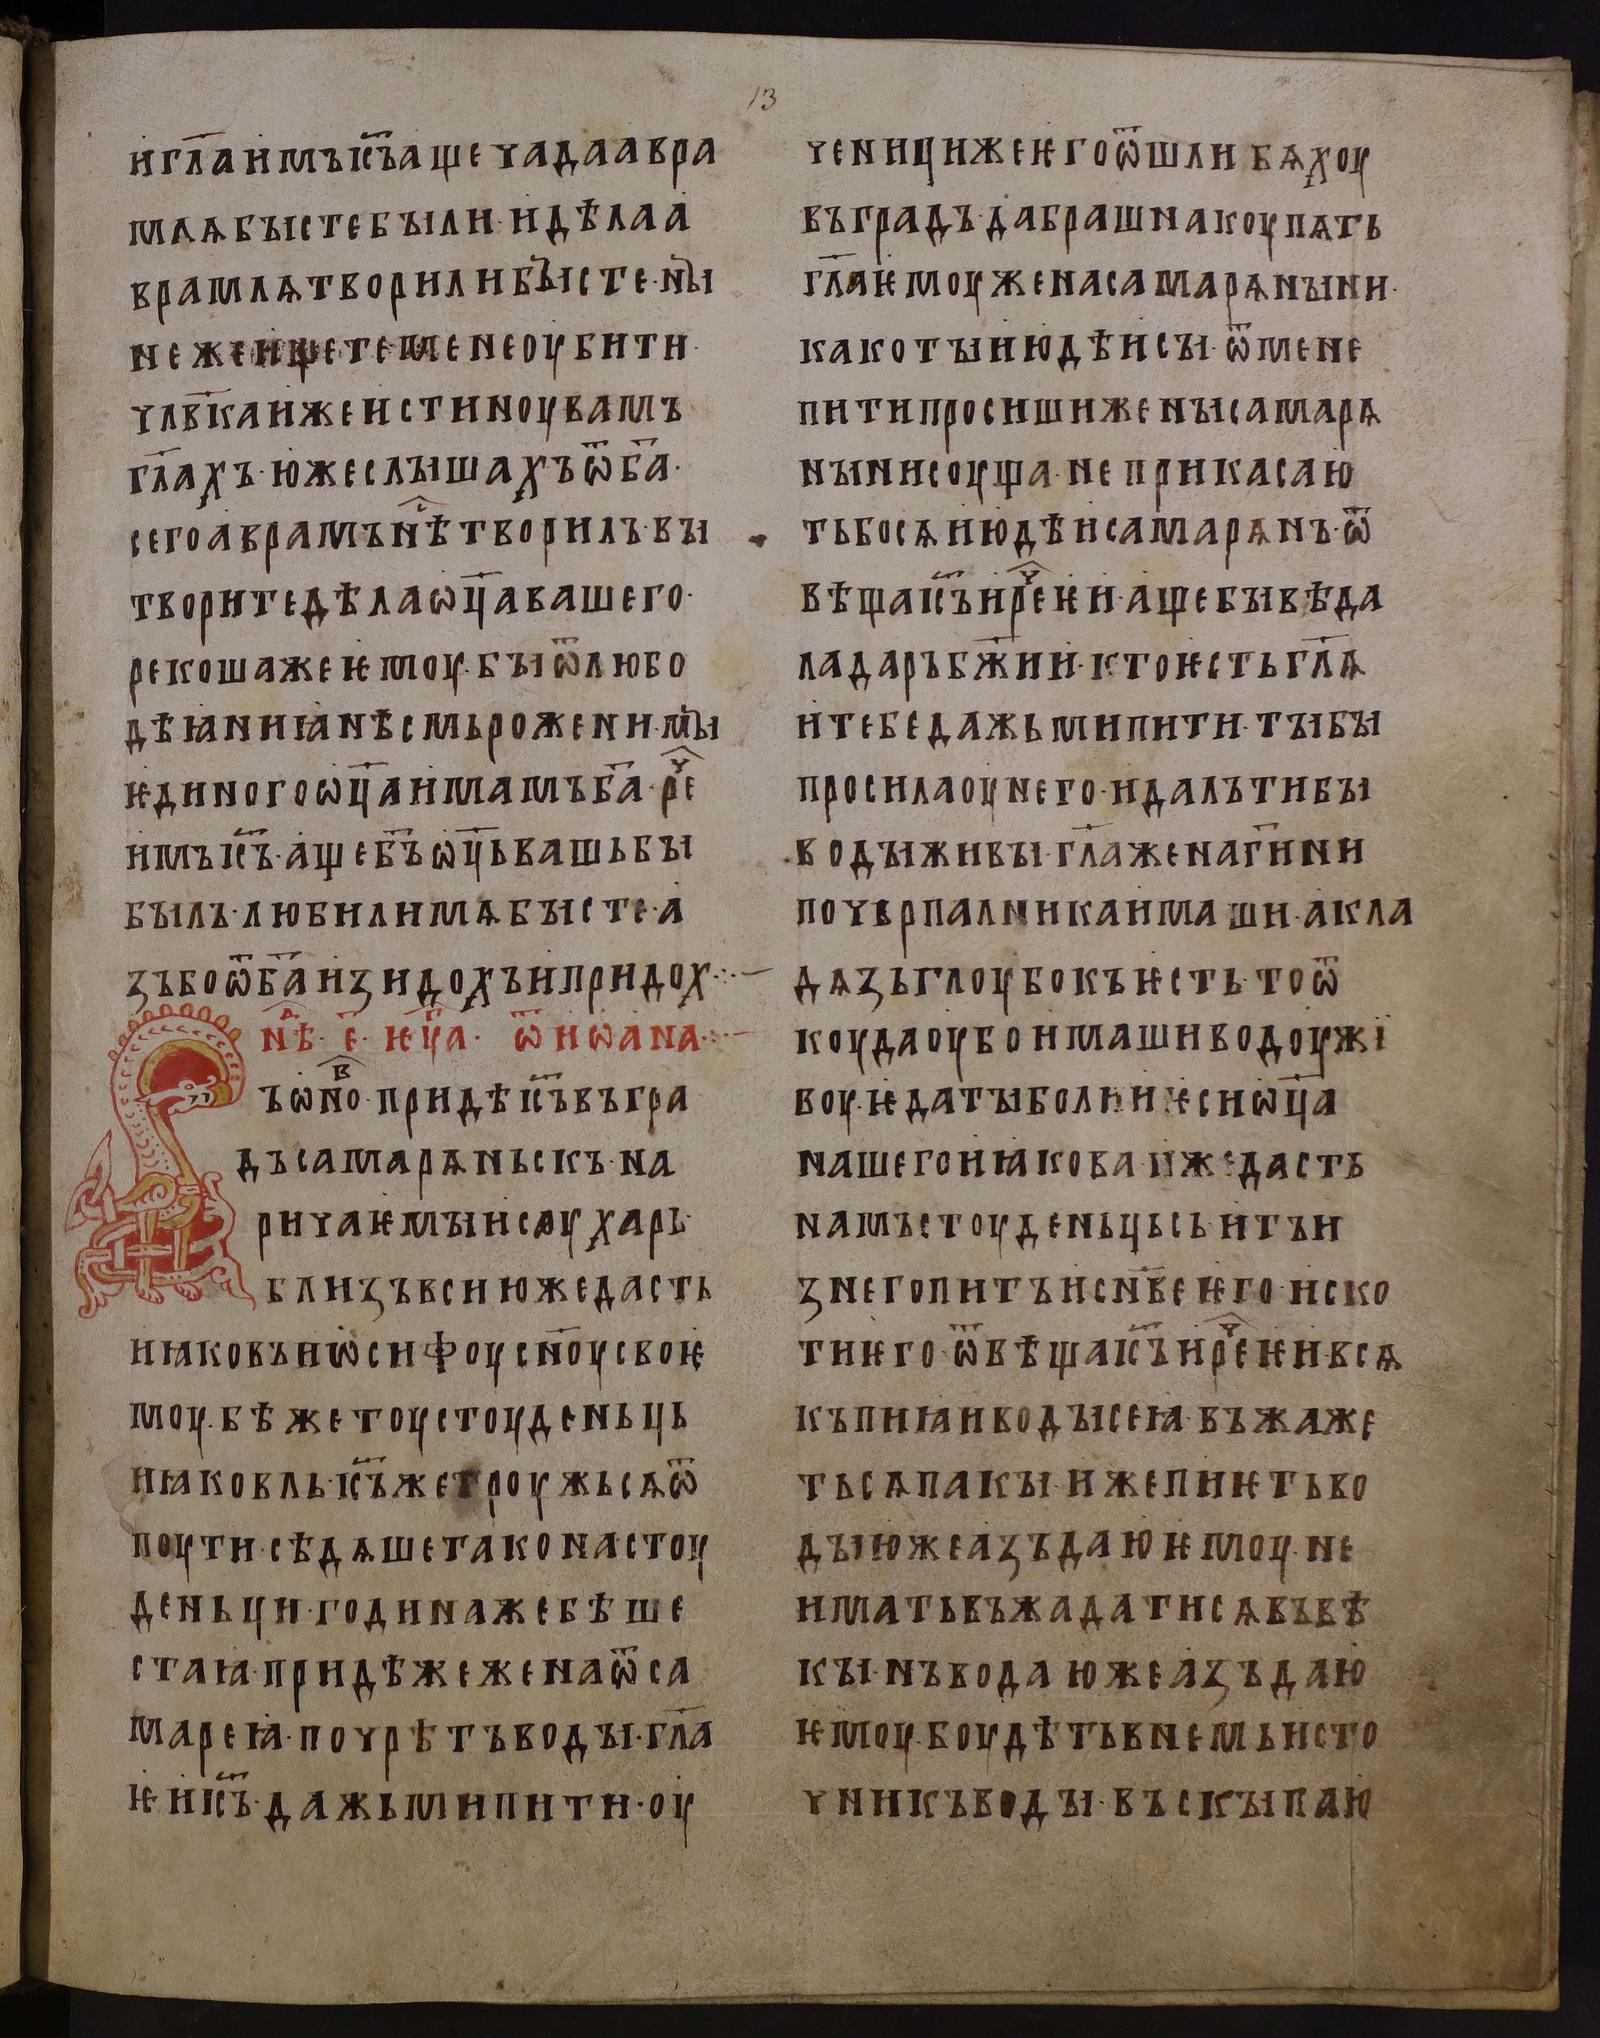 13
и гл҃а имъ іс҃ъ аще чада авра
млѧ бысте были· и дѣла а
врамлѧ творили бысте· нъі
не же ищете мене оубити·
чл҃вка иже истиноу вамъ
гл҃ахъ· юже слышахъ ѿ ба҃·
сего аврамъ нѣ҇ творилъ· вы
творите дѣла ѡц҃а вашего·
рекоша же ѥмоу· бы ѿ любо
дѣꙗниꙗ нѣсмь рожени· мы
ѥдиного ѡц҃а имамъ ба҃· реч҇
имъ іс҃ъ· аще бъ҃ ѡц҃ь вашь бы
былъ· любили мѧ бысте· а
зъ бо ѿ ба҃ изидохъ и придох· :·—
нед҇ѣ· е҃· ѥуг҃а· ѿ иѡана·:·—
Въ ѡнов҇· приде іс҃ъ въ гра
дъ самарѧньскъ· на
ричаѥмыи соухарь·
близъ вси юже дасть
иꙗковъ иѡсифоу сн҃оу своѥ
моу· бѣ же тоу стоуденьць
иꙗковль· іс҃ъ же троужьсѧ ѿ
поути· сѣдѧше тако на стоу
деньци· година же бѣ ше
стаꙗ· придѣ же жена ѿ са
мареꙗ· почрѣтъ воды· гл҃а
ѥи іс҃ъ· дажь ми пити· оу
ченици же ѥго ѿшли бѧхоу
въ градъ· да брашна коупѧть
гл҃а ѥмоу жена самарѧныни·
како ты июдѣи сы· ѿ мене
пити просиши жены самарѧ
ныни соуща· не прикасаю
ть бо сѧ июдѣи самарѧнъ· ѿ
вѣща іс҃ъ и реч҇ ѥи· аще бы вѣда
ла даръ бж҃ии· кто ѥсть гл҃ѧ
и тебе дажь ми пити· ты бы
просила оу него· и далъ ти бы
воды живы· гл҃а жена ги҃ ни
почврпалника имаши· а кла
дѧзь глоубокъ ѥсть· то ѿ
коуда оубо имаши водоу жї
воу· ѥда ты болии ѥси ѡц҃а
нашего иꙗкова иже дасть
намъ стоуденьць сь· и тъ и
з него питъ и сн҃ве ѥго· и ско
ти ѥго· ѿвѣща іс҃ъ и реч҇ ѥи· всѧ
къ пиꙗи воды сеꙗ· въжаже
тьсѧ пакы· иже пиѥть во
ды юже азъ даю ѥмоу· не
имать въжадатисѧ въ вѣ
кы· нъ вода юже азъ даю
ѥмоу· боудѣть в немь исто
чникъ воды· въскыпаю